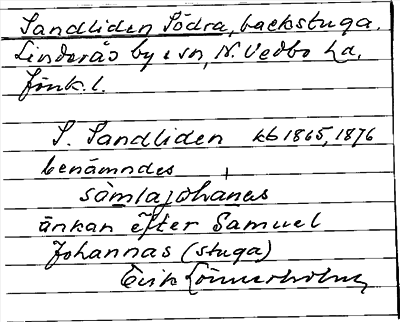 Sandliden Södra, backstuga.
Linderås by o sn, N. Vedbo hd.
Jönk. l.
S. Sandliden kb 1865, 1876
benämndes
sämlajohanas
änkan efter Samuel
Johannas (stuga)
Erik